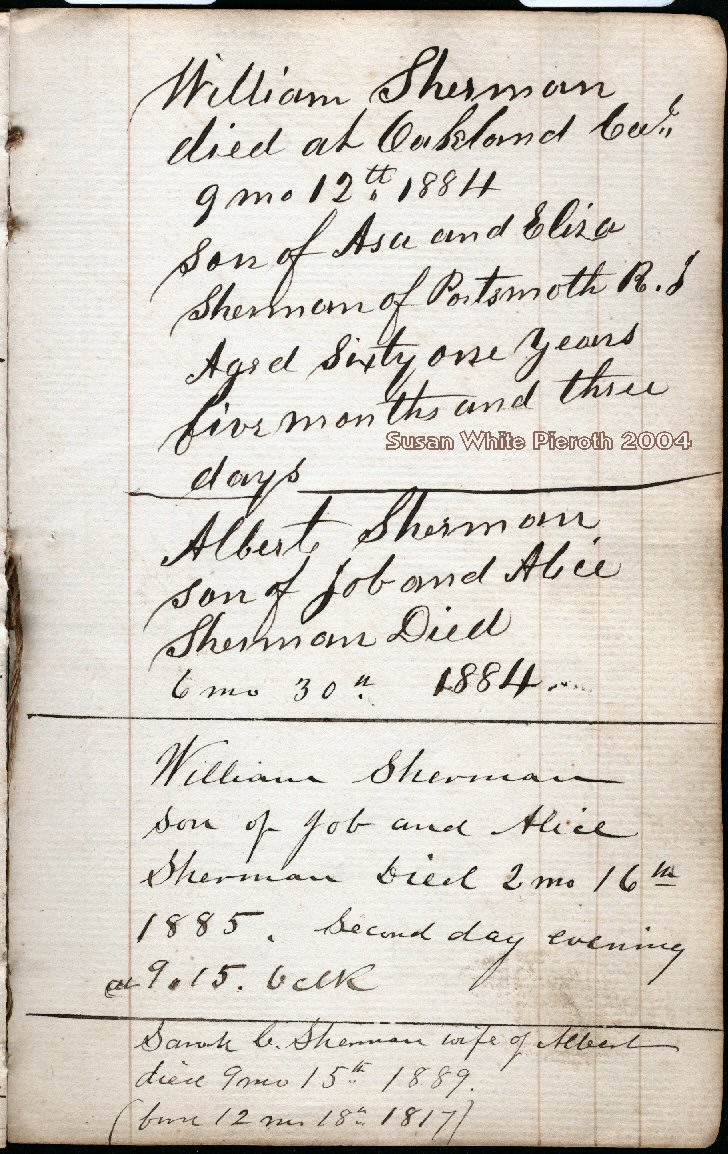 William Sherman
died at Oakland Cal.
9 mo 12th 1884
son of Asa and Eliza
Sherman of Portsmoth R.I
Aged Sixty one Years
five months and three
Susan White Pieroth 2004
days
Albert Sherman
son of Job and Alice
Sherman Died
6 mo 30th 1884
William Sherman
son of Job and Alice
Sherman Died 2 mo 16th
1885. Second day evening
at 9.15. Oclk
Sarah C. Sherman wife of Albert
died 9mo 15th 1889.
(born 12 mo 18th 1817)